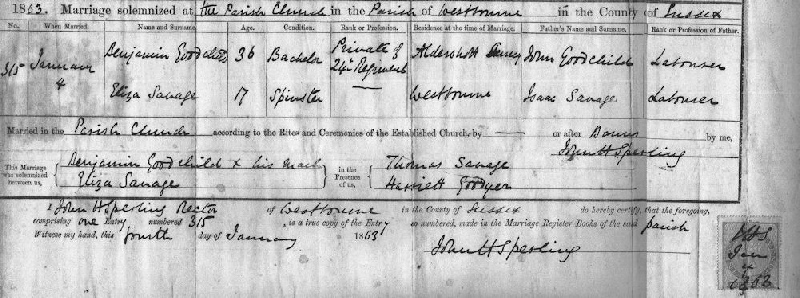 1863. Marriage solemnized at the Parish Church in the Parish of Westbourne in the County of Sussex
No. When Married. Name and Surname. Age. Condition. Rank or Profession. Residence at the time of Marriage. Father's Name and Surname. Rank or Profession of Father.
315 January 4 Benjamin Goodchild 36 Bachelor Private of 24th Regiment Aldershott Surrey John Goodchild Labourer
Eliza Savage 17 Spinster Westbourne Isaac Savage Labourer
Married in the Parish Church according to the Rites and Ceremonies of the Established Church by or after Banns by me,
John H Sperling
This Marriage was solemnized between us, Benjamin Goodchild x his mark in the Presence of us, Thomas Savage
Eliza Savage Harriett Goodyer
I John H Sperling Rector of Westbourne in the County of Sussex do hereby certify, that the foregoing,
comprising one Entry numbered 315 is a true copy of the Entry so numbered, made in the Marriage Register Books of the said parish
Witness my hand, this fourth day of January 1863
John H Sperling
JHS
Jan
4